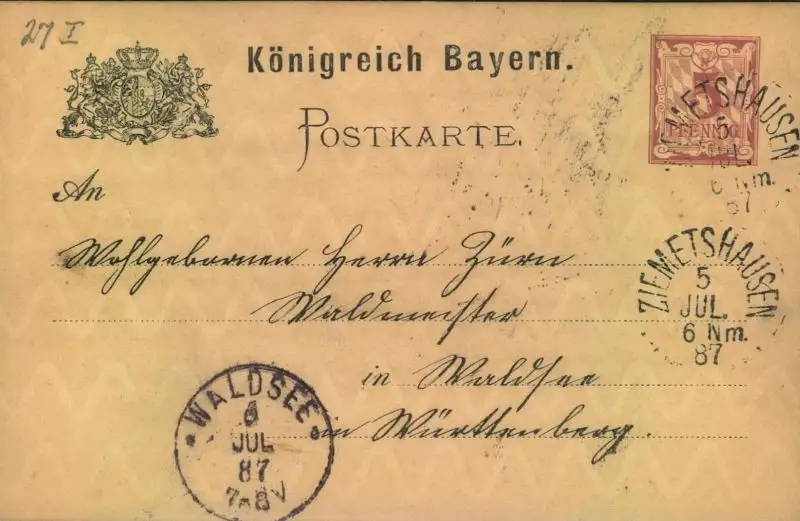 27 I
Königreich Bayern.
POSTKARTE.
An
Wohlgebornen Herrn Zürn
Waldmeister
in Waldsee
in Württenberg.
5
PFENNIG
ZIEMETSHAUSEN
5
JUL.
6 Nm.
87
ZIEMETSHAUSEN
5
JUL.
6 Nm.
87
* WALDSEE *
6
JUL
87
7-8V